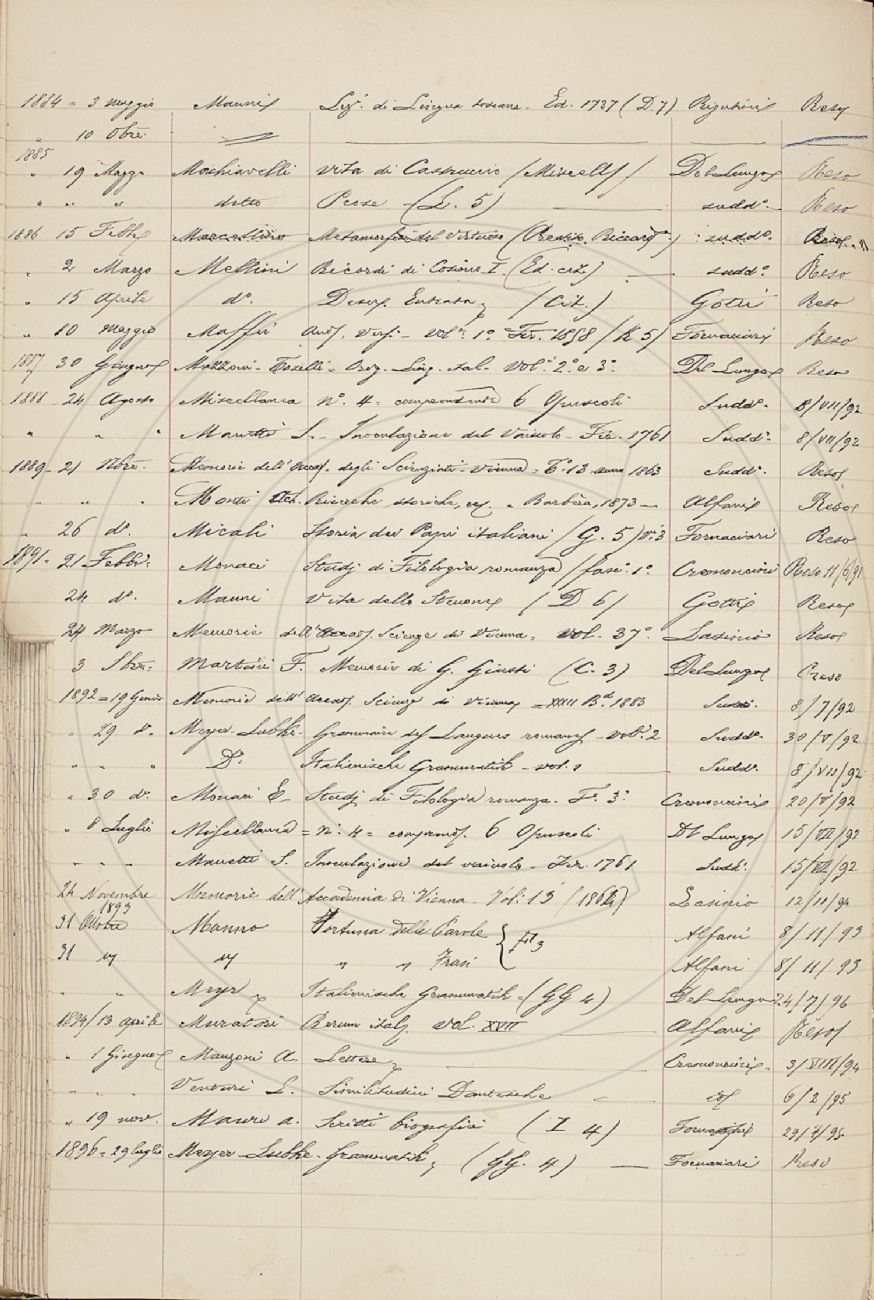 1884 = 3 maggio Manni Lez. di Lingua toscana. Ed. 1737 (D. 7) Rigutini Reso
" 10 8bre.
1885
" 19 Magg. Machiavelli Vita di Castruccio (Miscell.) Del Lungo Reso
" " " detto Prose (L. 5) — sudd.º Reso
1886 15 Febb. Marcellino Metamorfosi del Virtuoso sudd.º Reso
" 2 Marzo Mellini Ricordi di Cosimo I (Ed. cit.) — sudd.º Reso
" 15 Aprile dº. Descriz. Entrata (Cit.) Gotti Reso
" 10 Maggio Maffei Vol. 1º Fir. 1858 (K 5) Fornaciari Reso
1887 30 Giugno Mazzoni-Toselli Orig. Ling. ital. Vol. 2º e 3º Del Lungo Reso
1888 24 Agosto Miscellanea nº. 4 = comprendente 6 Opuscoli Sudd.º 8/VII/92
" " " Manetti S. Inoculazione del Vaiuolo - Fir. 1761 Sudd.º 8/VII/92
1889 - 21 9bre. Memorie dell'Accad. degli Scienziati - Vienna - Tº. 13 anno 1863 Sudd.º Reso
" " " Monti Ach. Ricerche storiche, " Barbèra, 1873 — Alfani Reso
" 26 dº. Micali Storia dei Popoli italiani (G. 5) Fornaciari Reso
1891 - 21 Febb. Monaci Studj di Filologia romanza (fasc. 1º. Cremoncini Reso 11/6/91
24 dº. Manni Vita dello Stenone (D 6) Gotti Reso
24 Marzo Memorie dell'Accad. Scienze di Vienna = vol. 37º. Lasinio Reso
3 8bre. Martini F. Memorie di G. Giusti (C. 3) Del Lungo Reso
1892 = 19 Genn. Memorie dell'Accad. Scienze di Vienna = Bd. 1883 Sudd.º 8/7/92
" 29 dº. Meyer-Lubke - Grammaire des Langues romanes - vol. 2 Sudd.º 30/V/92
" " " Dº. Italienische Grammatik - vol. 1 Sudd.º 8/VII/92
" 30 dº. Monaci E. Studj di Filologia romanza. Fº. 3º Cremoncini 20/V/92
" 8 Luglio Miscellanea = nº. 4 = 6 Opuscoli Del Lungo 15/VII/92
" " " Manetti S. Inoculazione del vaiuolo - Fir. 1761 Sudd.º 15/VII/92
24 Novembre Memorie dell'Accademia di Vienna - Vol. 13 (1864) Lasinio 12/11/94
1893
31 Ottobre Manno Fortuna delle Parole Alfani 8/11/93
31 " " " " Frasi Alfani 8/11/93
" " Meyer Italienische Grammatik = (GG 4) Del Lungo 24/7/96
1894/13 Aprile Muratori Rerum ital. vol. XVII Alfani Reso
" 1 Giugno Manzoni A. Lettere Cremoncini 3/VIII/94
" " Venturi L. Similitudini Dantesche id. 6/2/95
" 19 nov. Mauri A. Scritti biografici (I 4)
1896 = 29 luglio Meyer-Lubke - Grammatik (GG. 4) — Fornaciari Reso